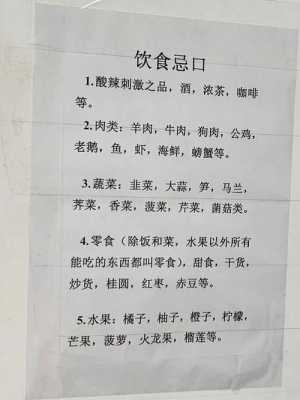 饮食忌口
1.酸辣刺激之品，酒，浓茶，咖啡
等。
2.肉类：羊肉，牛肉，狗肉，公鸡，
老鹅，鱼，虾，海鲜，螃蟹等。
3.蔬菜：韭菜，大蒜，笋，马兰，
荠菜，香菜，菠菜，芹菜，菌菇类。
4.零食（除饭和菜，水果以外所有
能吃的东西都叫零食），甜食，干货，
炒货，桂圆，红枣，赤豆等。
5.水果：橘子，柚子，橙子，柠檬，
芒果，菠萝，火龙果，榴莲等。